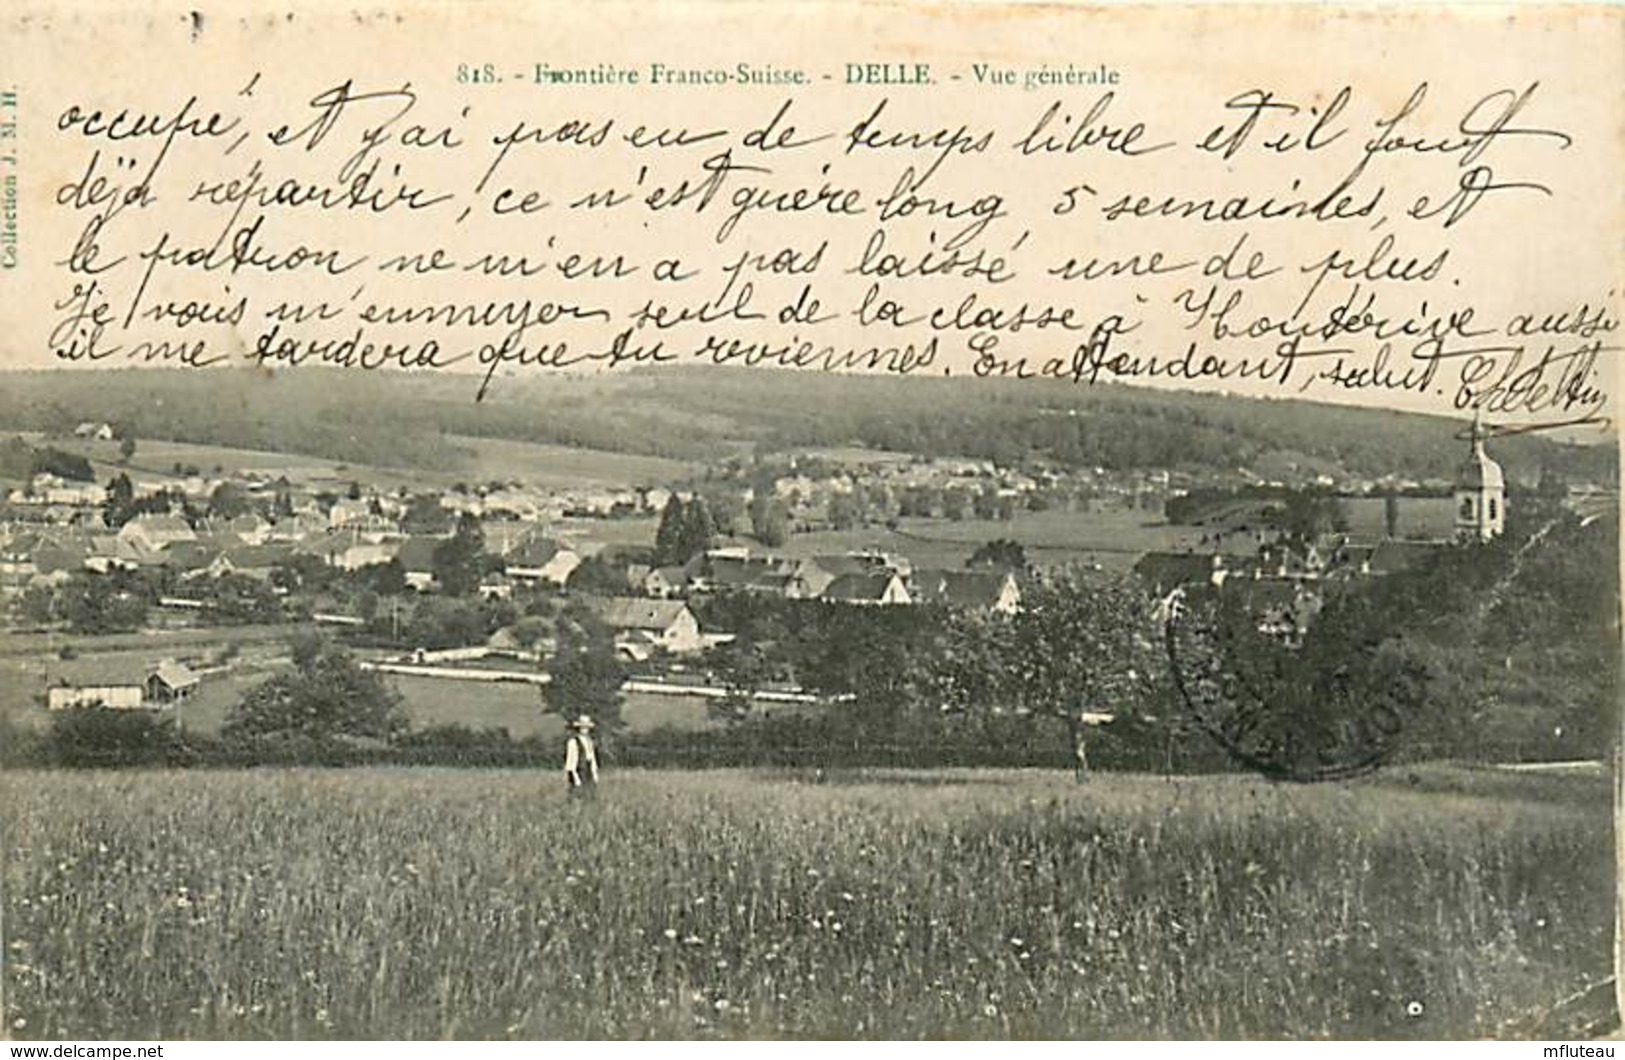 818. - Frontière Franco-Suisse. - DELLE. - Vue générale
Collection J. M. H.
occupé, et j'ai pas eu de temps libre et il faut
déjà répartir, ce n'est guère long 5 semaines, et
le patron ne m'en a pas laissé une de plus.
Je vais m'ennuyer seul de la classe à aussi
il me tardera que tu reviennes. En attendant, salut.
www.delcampe.net
mfluteau